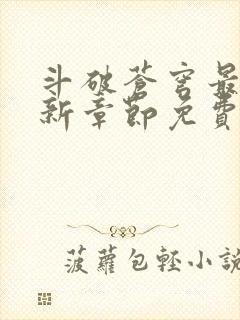 斗破蒼穹最
新章節免費
菠蘿包輕小說